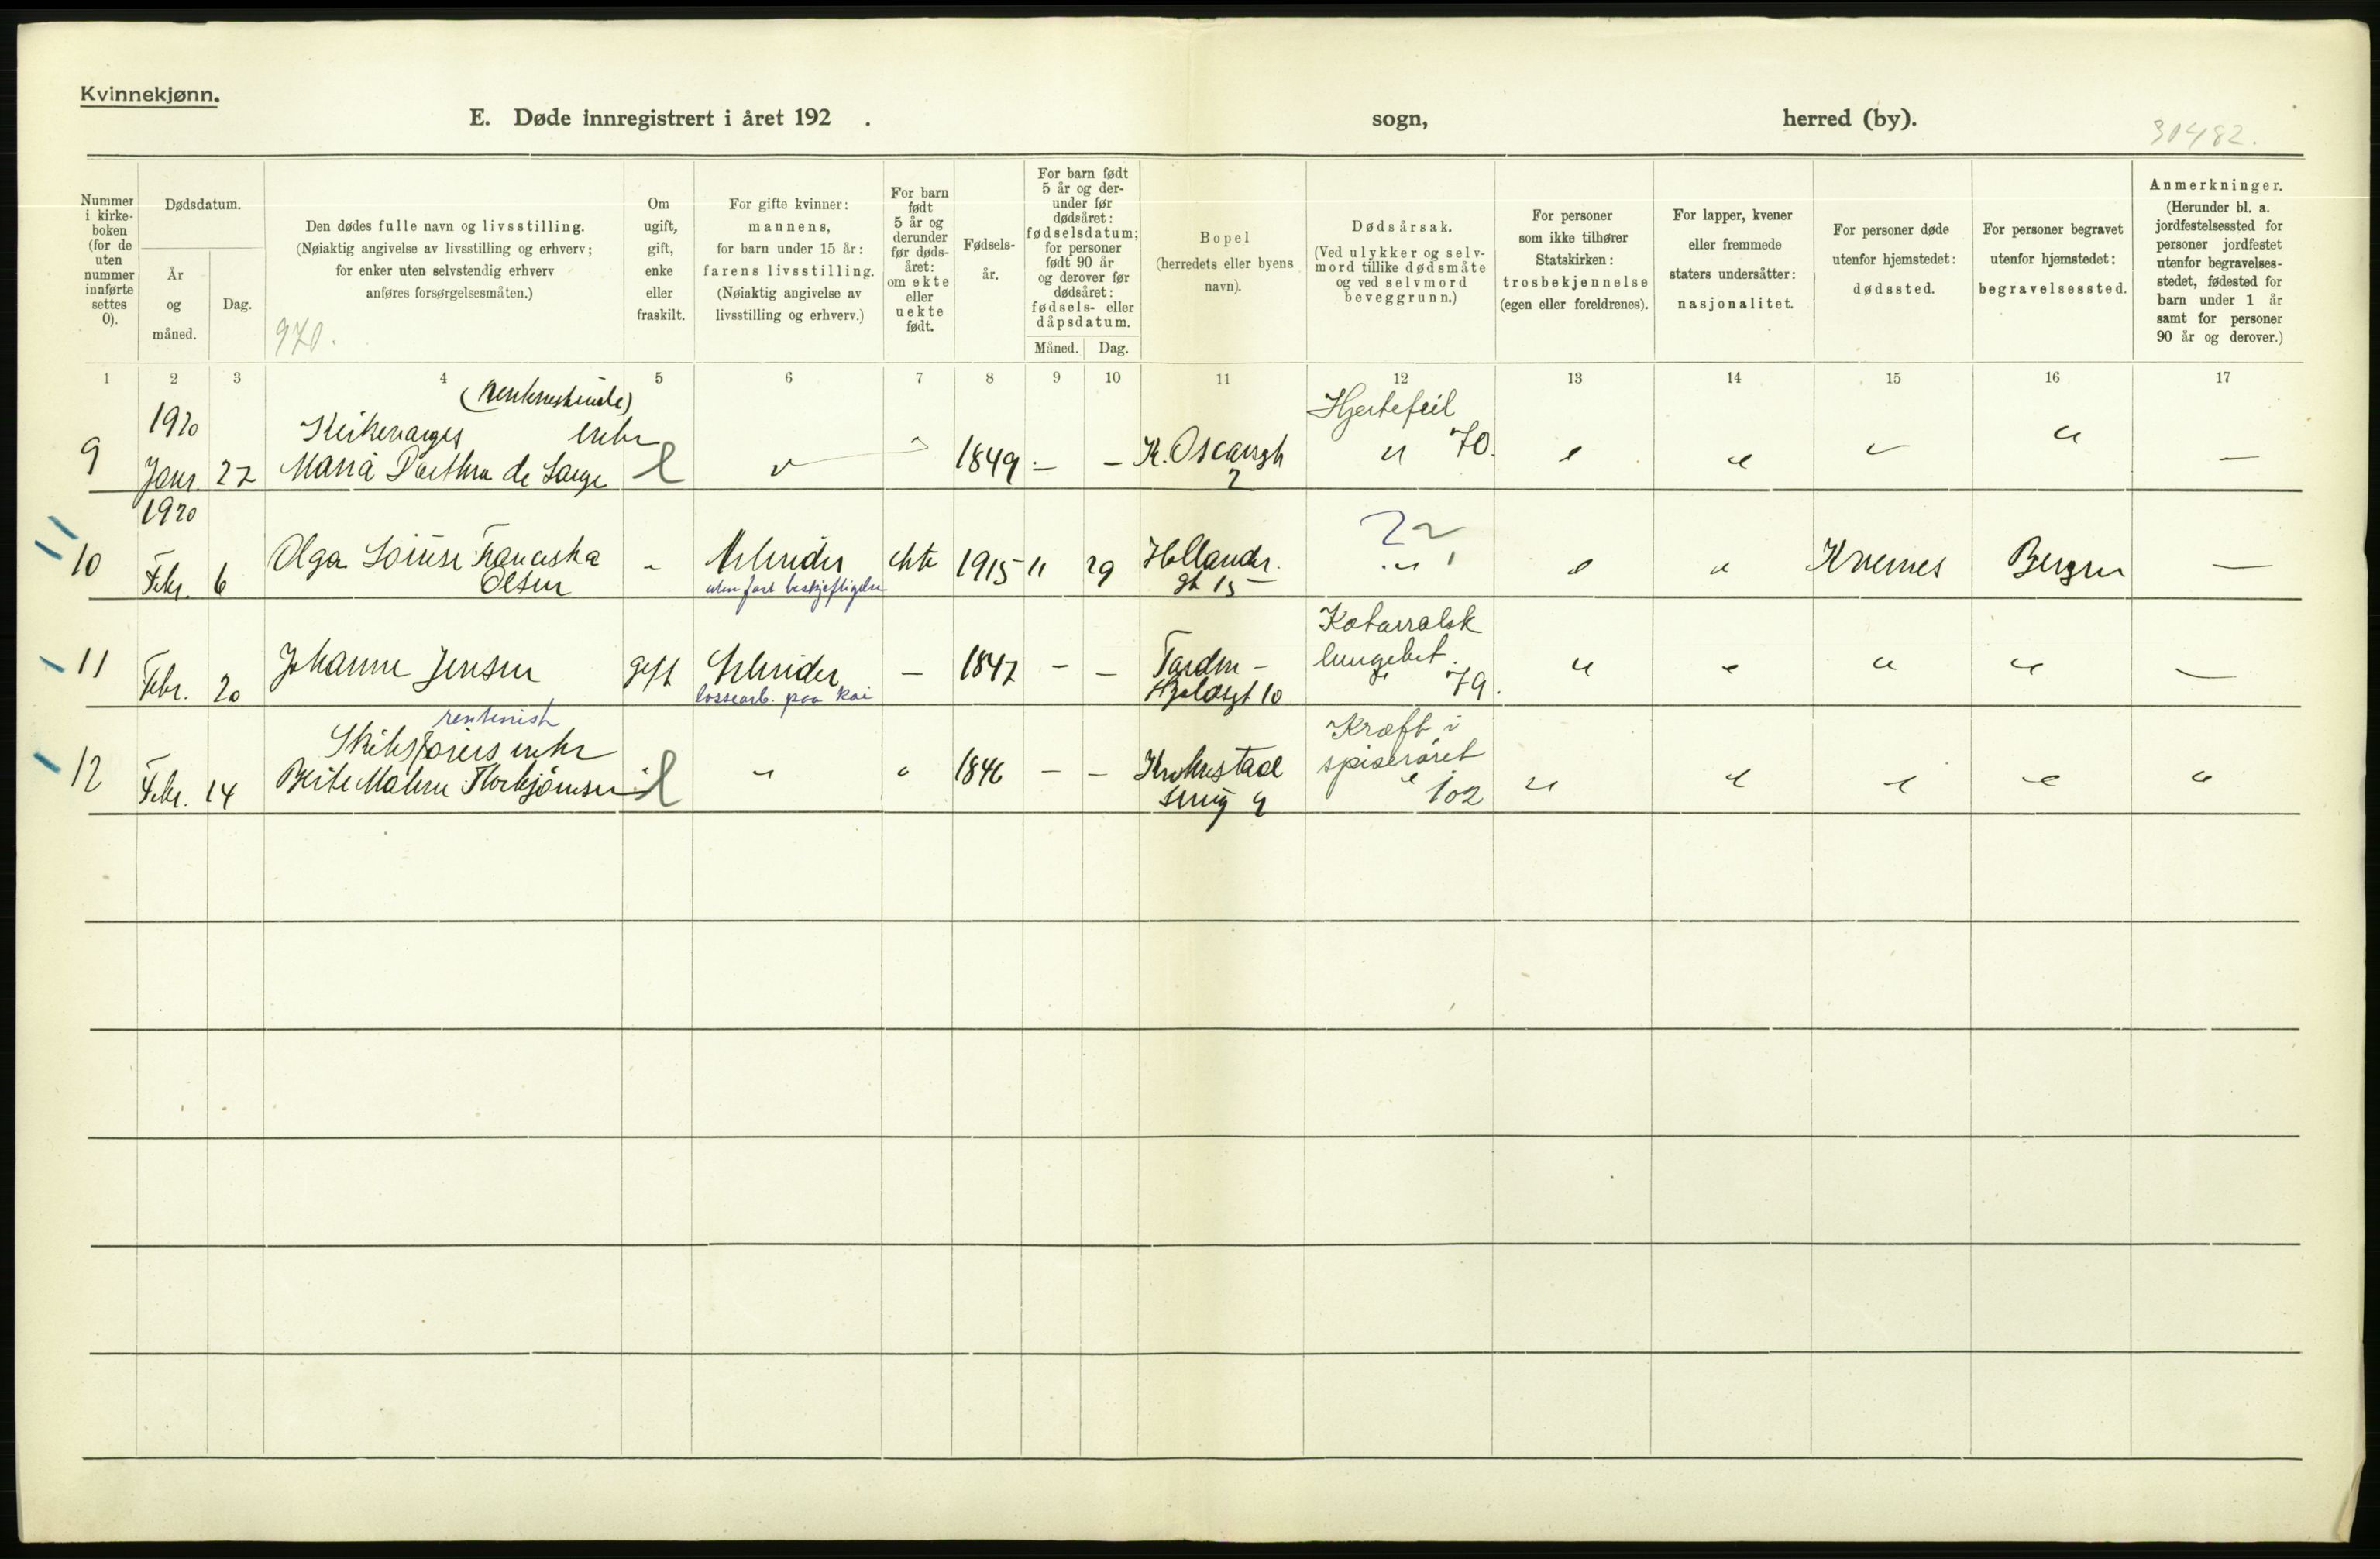 Kvinnekjønn.
E. Døde innregistrert i året 192 . sogn, herred (by).
30482.
Nummer i kirke-boken (for de uten nummer innførte settes 0).
Dødsdatum.
År og måned.
Dag.
Den dødes fulle navn og livsstilling.
(Nøiaktig angivelse av livsstilling og erhverv;
for enker uten selvstendig erhverv
anføres forsørgelsesmåten.)
970.
Om ugift, gift, enke eller fraskilt.
For gifte kvinner:
mannens,
for barn under 15 år:
farens livsstilling.
(Nøiaktig angivelse av
livsstilling og erhverv.)
For barn født 5 år og derunder før døds-året: om ekte eller uekte født.
Fødsels-år.
For barn født 5 år og der-under før dødsåret: fødselsdatum; for personer født 90 år og derover før dødsåret: fødsels- eller dåpsdatum.
Måned. Dag.
Bopel
(herredets eller byens navn).
Dødsårsak.
(Ved ulykker og selv-mord tillike dødsmåte og ved selvmord beveggrunn.)
For personer som ikke tilhører Statskirken: trosbekjennelse (egen eller foreldrenes).
For lapper, kvener eller fremmede staters undersåtter: nasjonalitet.
For personer døde utenfor hjemstedet: dødssted.
For personer begravet utenfor hjemstedet: begravelsessted.
Anmerkninger.
(Herunder bl. a. jordfestelsessted for personer jordfestet utenfor begravelses-stedet, fødested for barn under 1 år samt for personer 90 år og derover.)
1 2 3 4 5 6 7 8 9 10 11 12 13 14 15 16 17
1920
Hjertefeil
9 Janr. 27 Maria de Lange 1849 – – K. Oscarsgt 2 " 70. " " " " –
1920
10 Febr. 6 Olga Louise Olsen " Arbeider ekte 1915 11 29 Hollender. gt 15 " " " Bergen –
uten fast beskjeftigelse
11 Febr. 20 Johanne Jensen gift Arbeider – 1847 – – 10 Katarralsk lungebet. " 79. " " " " –
lossearb. paa kai
12 Febr. 14 Skibsførers enke " " 1846 – – smug 9 Kræft i spiserøret " 102 " " " " "